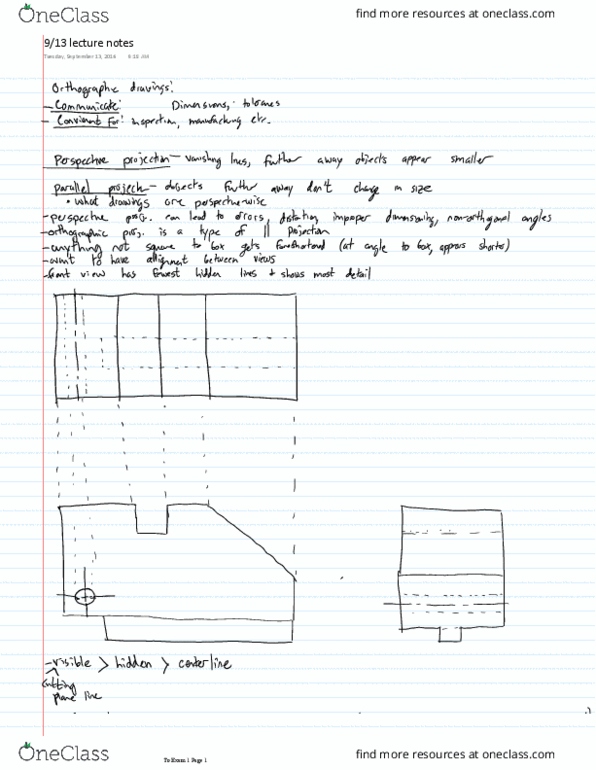 OneClass
find more resources at oneclass.com
9/13 lecture notes
Tuesday, September 13, 2016 9:18 AM
Orthographic drawings:
- Communicate: Dimensions, tolerances
- Convienent for: inspection, manufacturing etc.
Perspective projection - vanishing lines, further away objects appear smaller
parallel project - objects further away don't change in size
• what drawings are perspective-wise
- perspective proj. can lead to errors, distortion, improper dimensioning, non-orthogonal angles
- orthographic proj. is a type of || projection
- anything not square to box gets foreshortened (at angle to box, appears shorter)
- want to have alignment between views
- front view has fewest hidden lines + shows most detail
- visible > hidden > centerline
cutting
plane line
OneClass
To Exam 1 Page 1
find more resources at oneclass.com